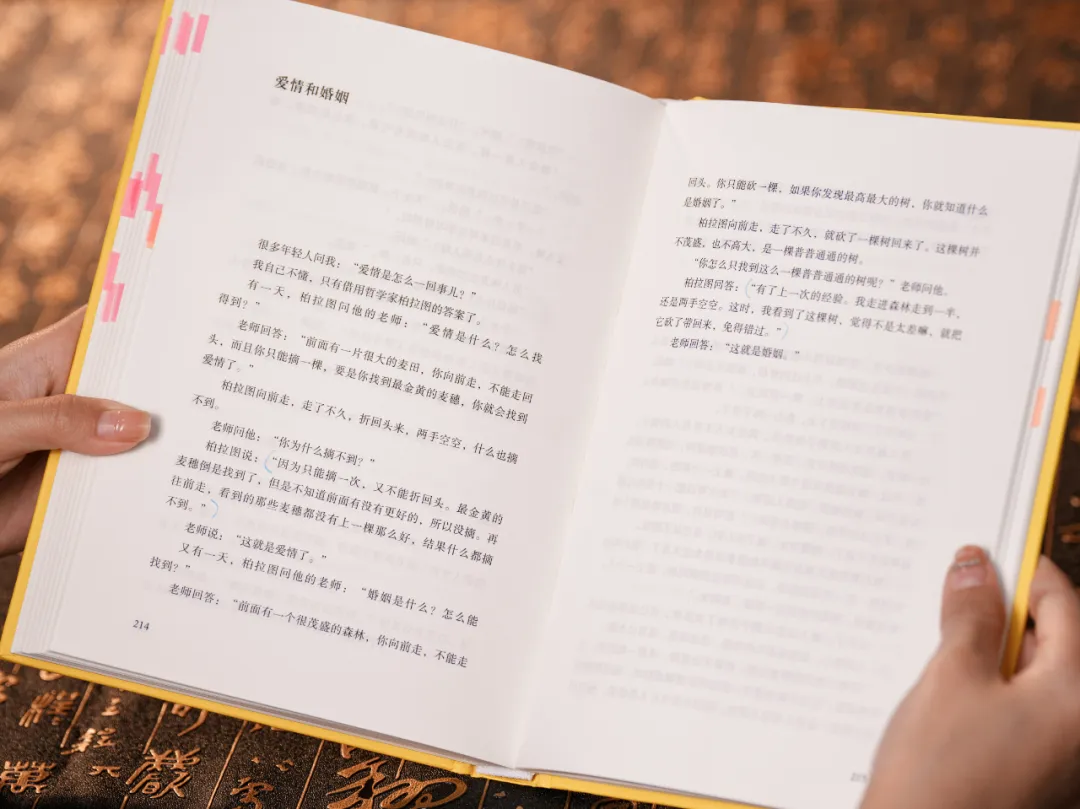 爱情和婚姻
很多年轻人问我：“爱情是怎么一回事儿？”
我自己不懂，只有借用哲学家柏拉图的答案了。
有一天，柏拉图问他的老师：“爱情是什么？怎么找
得到？”
老师回答：“前面有一片很大的麦田，你向前走，不能走回
头，而且你只能摘一棵，要是你找到最金黄的麦穗，你就会找到
爱情了。”
柏拉图向前走，走了不久，折回头来，两手空空，什么也摘
不到。
老师问他：“你为什么摘不到？”
柏拉图说：“因为只能摘一次，又不能折回头。最金黄的
麦穗倒是找到了，但是不知道前面有没有更好的，所以没摘。再
往前走，看到的那些麦穗都没有上一棵那么好，结果什么都摘
不到。”
老师说：“这就是爱情了。”
又有一天，柏拉图问他的老师：“婚姻是什么？怎么能
找到？”
老师回答：“前面有一个很茂盛的森林，你向前走，不能走
214
回头。你只能砍一棵，如果你发现最高最大的树，你就知道什么
是婚姻了。”
柏拉图向前走，走了不久，就砍了一棵树回来了。这棵树并
不茂盛，也不高大，是一棵普普通通的树。
“你怎么只找到这么一棵普普通通的树呢？”老师问他。
柏拉图回答：“有了上一次的经验，我走进森林走到一半，
还是两手空空。这时，我看到了这棵树，觉得不是太差嘛，就把
它砍了带回来，免得错过。”
老师回答：“这就是婚姻。”